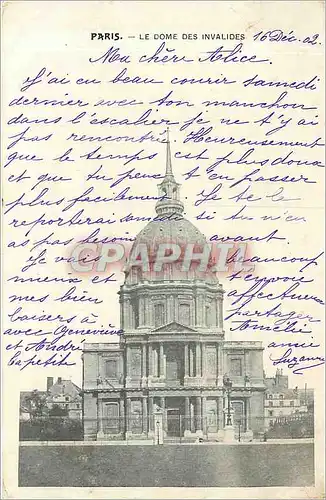 PARIS. — LE DOME DES INVALIDES 16 Déc. 02.
Ma chère Alice.
J'ai eu beau courir samedi
dernier avec ton manchon
dans l'escalier je ne t'y ai
pas rencontrée. Heureusement
que le temps est plus doux
et que tu peux t'en passer
plus facilement. Je te le
reporterai samedi si tu n'en
as pas besoin avant.
Je vais beaucoup
mieux et t'envoie
mes bien affectueux
baisers à partager
avec Geneviève Amélie
et André ta petite amie
Suzanne
CPARAMA